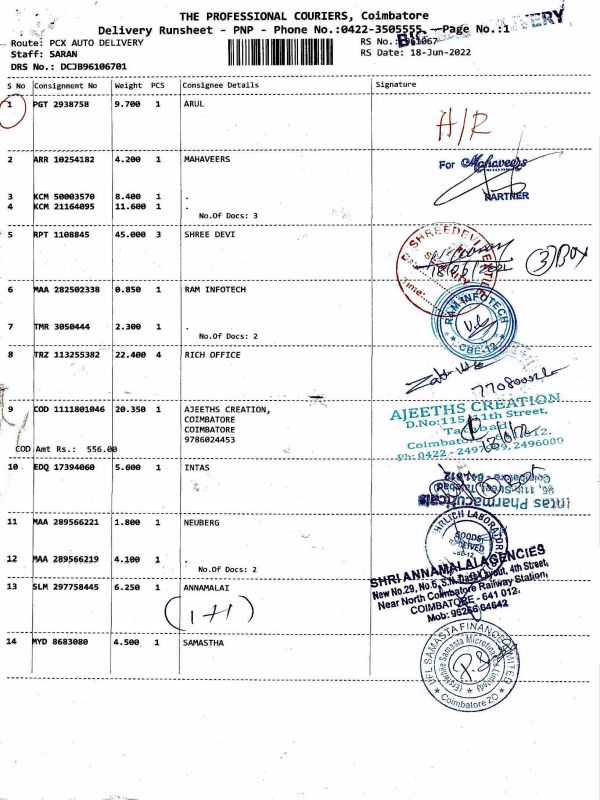 THE PROFESSIONAL COURIERS, Coimbatore
Delivery Runsheet - PNP - Phone No.:0422-3505555 Page No.:1
DELIVERY
Route: PCX AUTO DELIVERY
Staff: SARAN
DRS No.: DCJB96106701
RS No.: 961067
RS Date: 18-Jun-2022
S No Consignment No Weight PCS Consignee Details Signature
1 PGT 2938758 9.700 1 ARUL
H/R
2 ARR 10254182 4.200 1 MAHAVEERS
For Mahaveers
PARTNER
3 KCM 50003570 8.400 1 .
4 KCM 21164095 11.600 1 .
No.Of Docs: 3
5 RPT 1108845 45.000 3 SHREE DEVI
SHREEDEVI TEXTILE
Time:
3 BOX
6 MAA 282502338 0.850 1 RAM INFOTECH
RAM INFOTECH
CBE-12
7 TMR 3050444 2.300 1 .
No.Of Docs: 2
8 TRZ 113255382 22.400 4 RICH OFFICE
9 COD 1111801046 20.350 1 AJEETHS CREATION,
COIMBATORE
COIMBATORE
9786024453
COD Amt Rs.: 556.00
AJEETHS CREATION
D.No:115, 11th Street,
Tatabad
Coimbatore - 641012.
Ph: 0422 - 2497699, 2496000
10 EDQ 17394060 5.000 1 INTAS
Intas Pharmaceuticals
11th Street, Tatabad
Coimbatore - 641 012
11 MAA 289566221 1.800 1 NEUBERG
EHRLICH LABORATORY
GOODS
RECEIVED
12 MAA 289566219 4.100 1 .
No.Of Docs: 2
13 SLM 297758445 6.250 1 ANNAMALAI
SHRI ANNAMALAI AGENCIES
New No.29, No.6, S.N. Dass Layout, 4th Street,
Near North Coimbatore Railway Station,
COIMBATORE - 641 012.
Mob: 96266 64642
14 MYD 8683080 4.500 1 SAMASTHA
IIFL SAMASTA FINANCE LIMITED
(Erstwhile Samasta Microfinance Limited)
Coimbatore 20